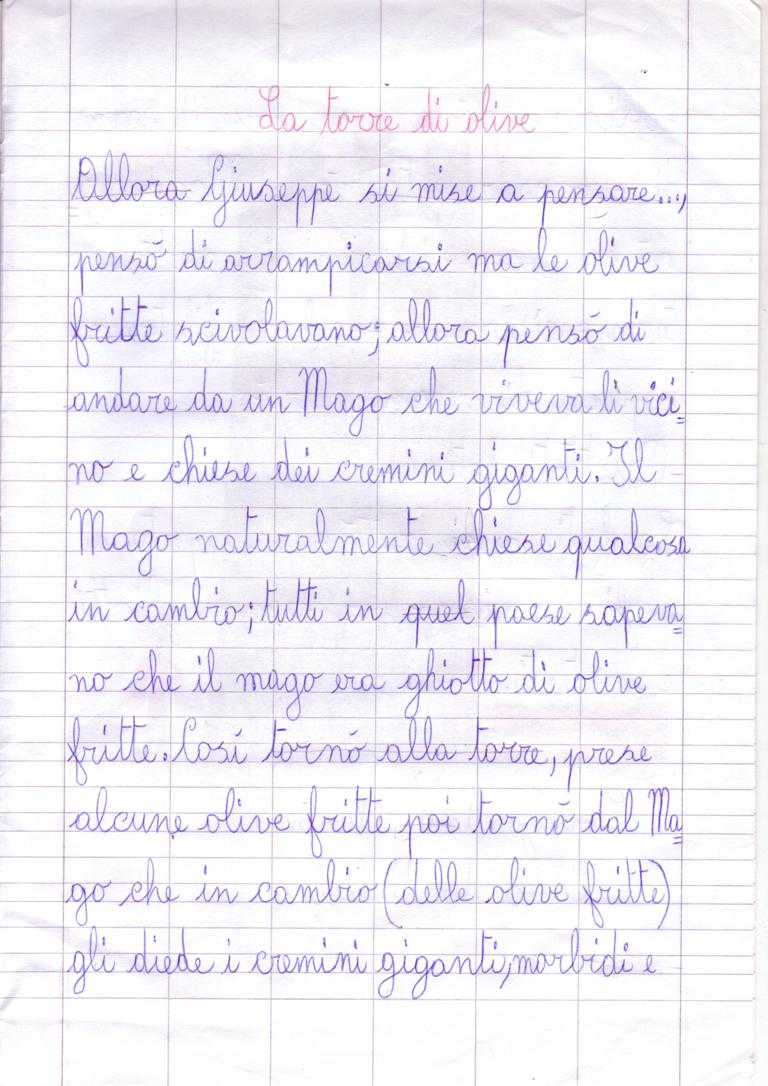 La torre di olive
Allora Giuseppe si mise a pensare...,
pensó di arrampicarsi ma le olive
fritte scivolavano; allora pensó di
andare da un Mago che viveva lì vici=
no e chiese dei cremini giganti. Il
Mago naturalmente chiese qualcosa
in cambio; tutti in quel paese sapeva=
no che il mago era ghiotto di olive
fritte. Cosí tornó alla torre, prese
alcune olive fritte poi tornó dal Ma=
go che in cambio (delle olive fritte)
gli diede i cremini giganti, morbidi e